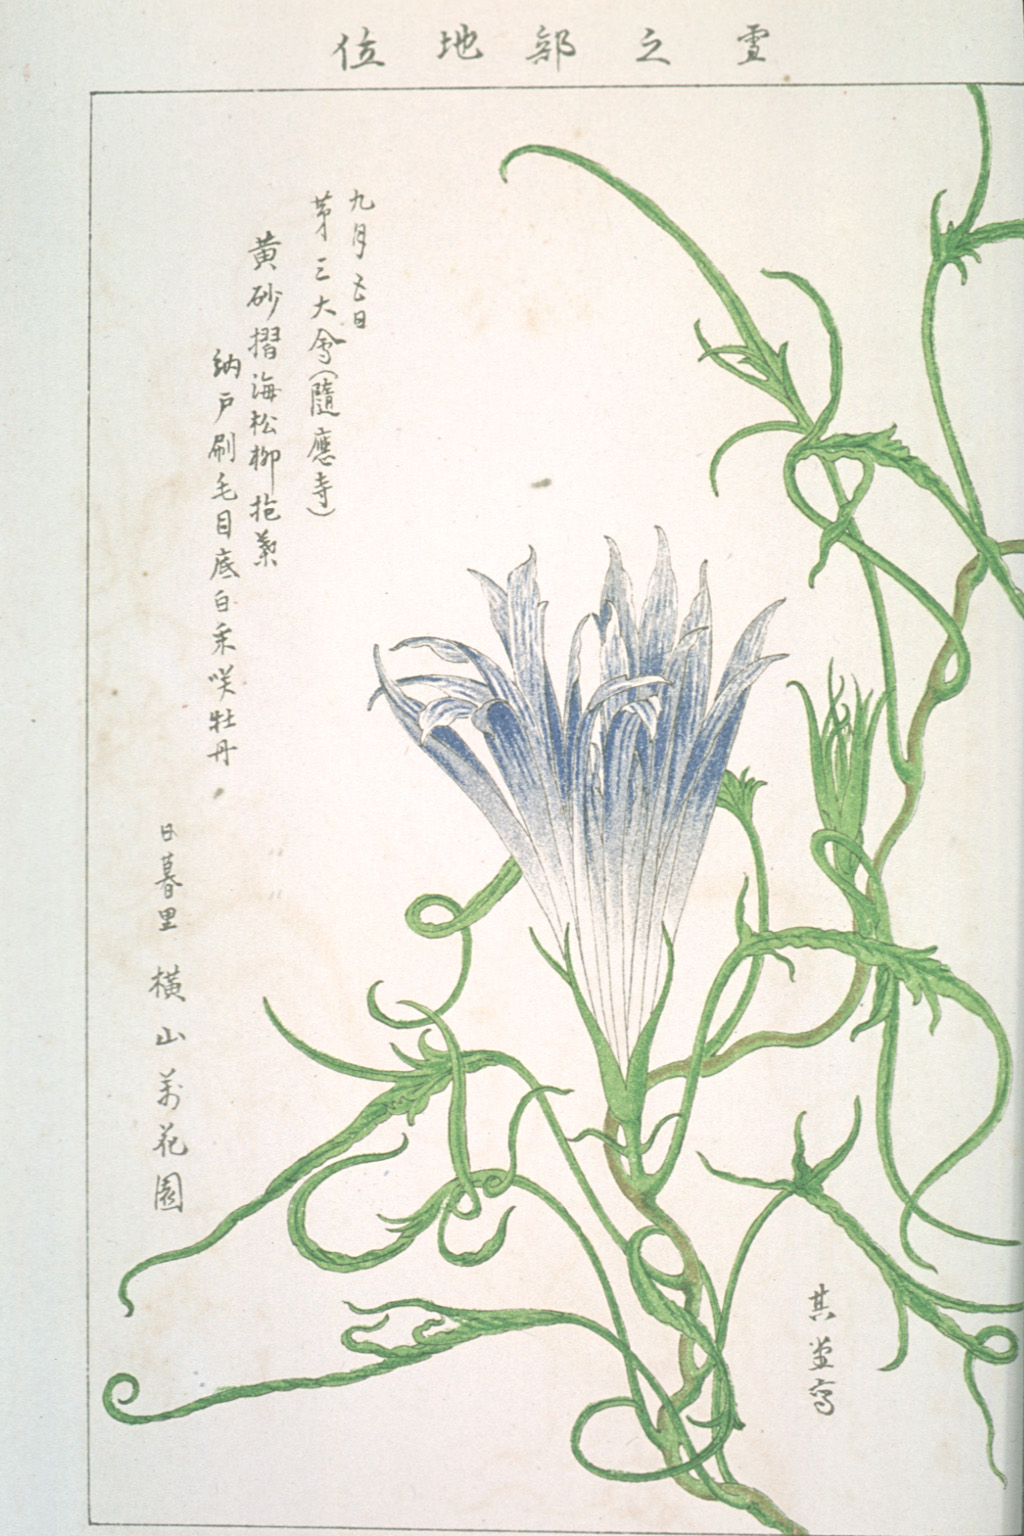 雪之部地位
九月五日
第三大會(隨應寺)
黄砂摺海松柳抱葉
納戸刷毛目底白采咲牡丹
日暮里 横山萬花園
其堂寫